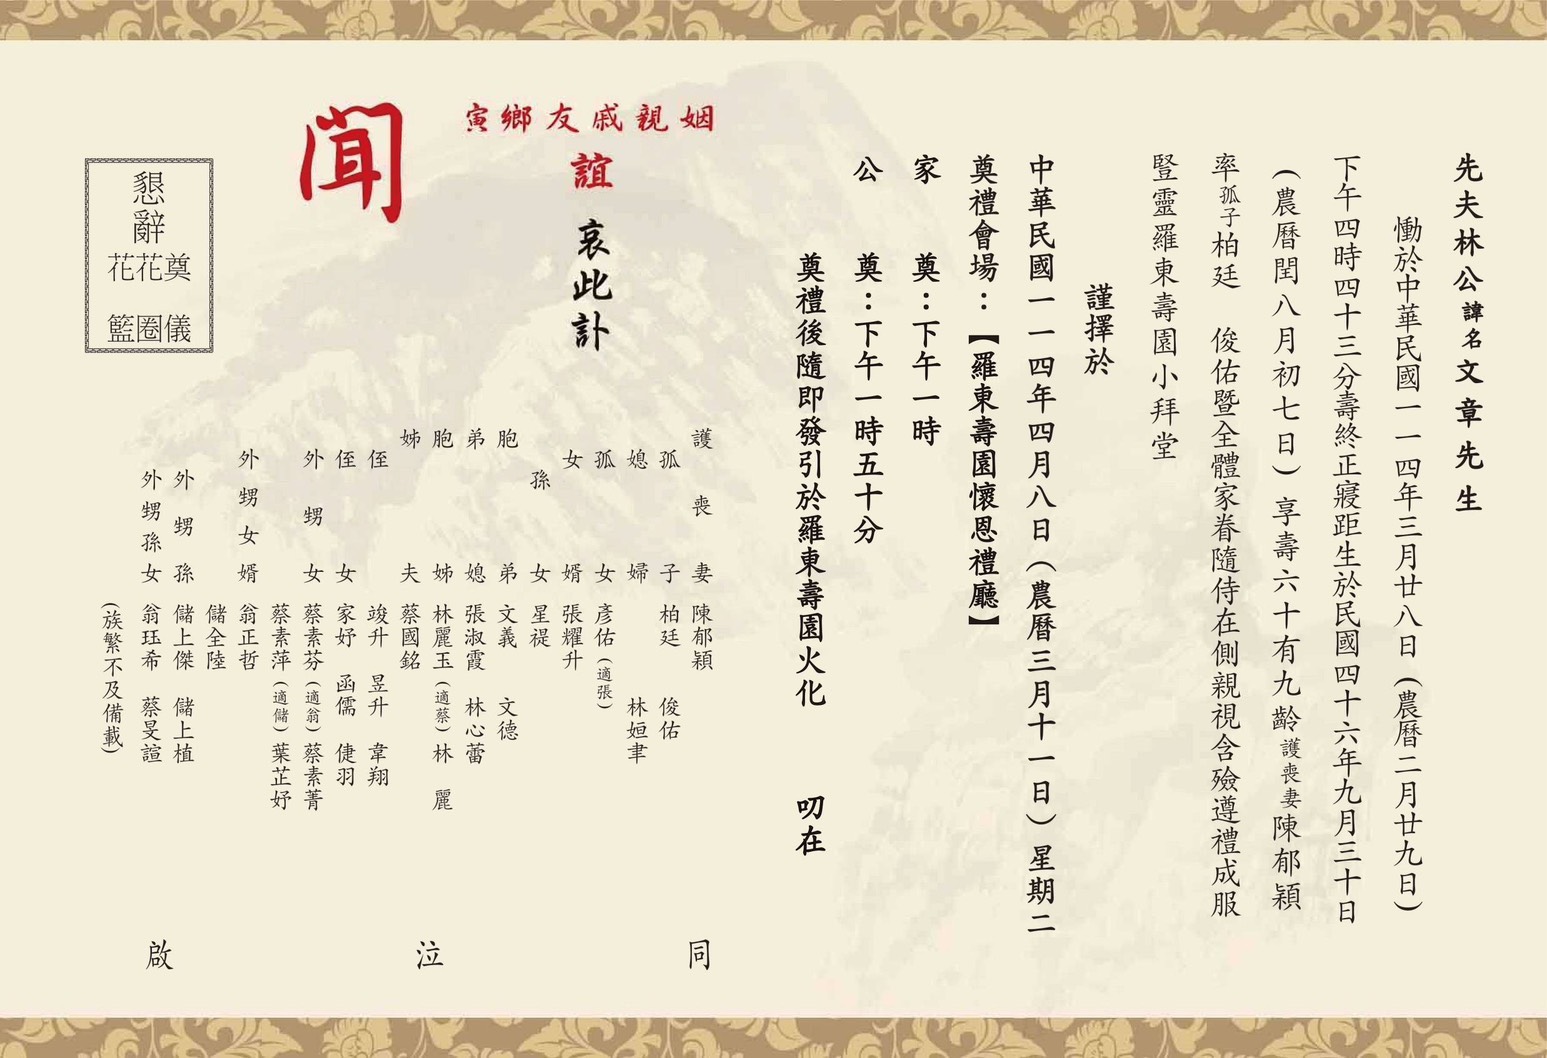 先夫林公諱名文章先生
慟於中華民國一一四年三月廿八日(農曆二月廿九日)
下午四時四十三分壽終正寢距生於民國四十六年九月三十日
(農曆閏八月初七日)享壽六十有九齡護喪妻陳郁穎
率孤子柏廷 俊佑暨全體家眷隨侍在側親視含殮遵禮成服
豎靈羅東壽園小拜堂
謹擇於
中華民國一一四年四月八日(農曆三月十一日)星期二
奠禮會場:【羅東壽園懷恩禮廳】
家 奠:下午一時
公 奠:下午一時五十分
奠禮後隨即發引於羅東壽園火化 叨在
姻親戚友鄉寅
誼 哀此訃
聞
護喪妻 陳郁穎
孤子 柏廷 俊佑
媳婦 林姮聿
孤女 彥佑(適張)
女婿 張耀升
孫女 星禔
胞弟 文義 文德
弟媳 張淑霞 林心蕾
胞姊 林麗玉(適蔡)林 麗
姊夫 蔡國銘
侄 竣升 昱升 韋翔
侄女 家妤 函儒 倢羽
外甥女 蔡素芬(適翁)蔡素菁
蔡素萍(適儲)葉芷妤
外甥女婿 翁正哲
儲全陸
外甥孫 儲上傑 儲上植
外甥孫女 翁珏希 蔡旻諠
(族繁不及備載)
同 泣 啟
懇辭
奠儀
花圈
花籃